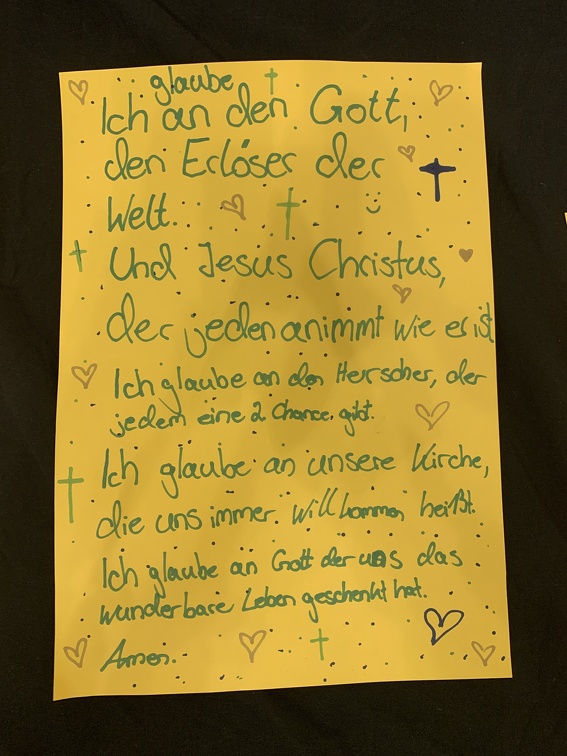 glaube
Ich an den Gott,
den Erlöser der
Welt.
Und Jesus Christus,
der jeden animmt wie er ist
Ich glaube an den Herrscher, der
jedem eine 2. Chance gibt.
Ich glaube an unsere Kirche,
die uns immer willkommen heißt.
Ich glaube an Gott der uns das
wunderbare Leben geschenkt hat.
Amen.